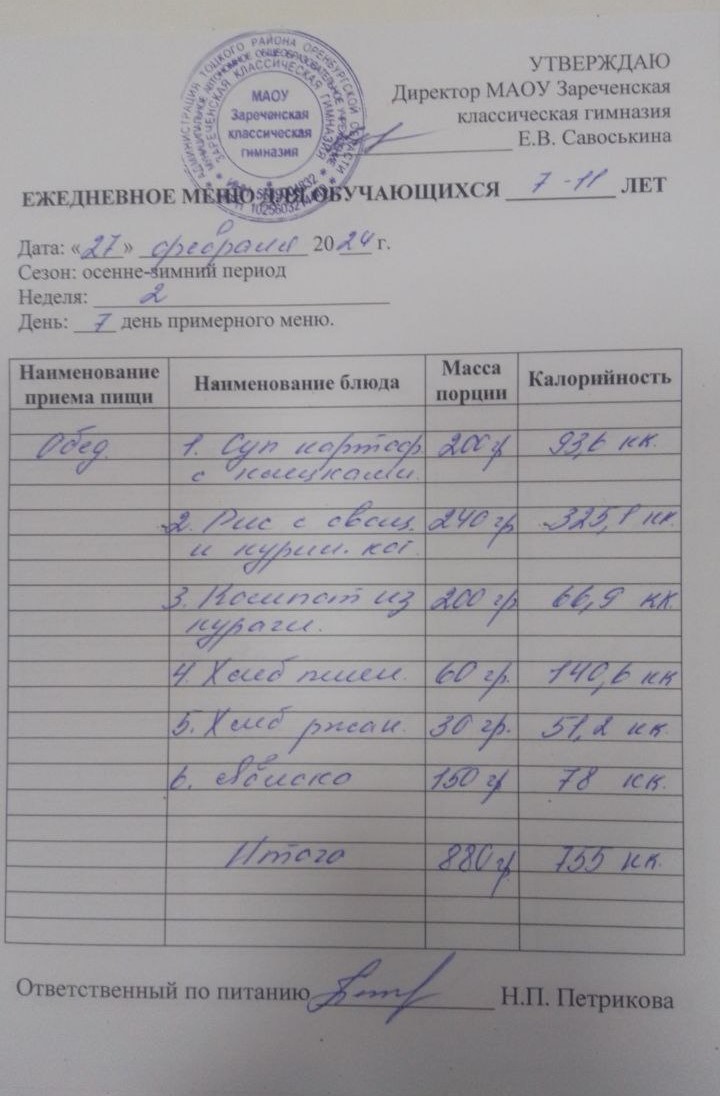 АДМИНИСТРАЦИЯ ТОЦКОГО РАЙОНА ОРЕНБУРГСКОЙ ОБЛАСТИ
МУНИЦИПАЛЬНОЕ АВТОНОМНОЕ ОБЩЕОБРАЗОВАТЕЛЬНОЕ УЧРЕЖДЕНИЕ
ЗАРЕЧЕНСКАЯ КЛАССИЧЕСКАЯ ГИМНАЗИЯ
МАОУ
Зареченская
классическая
гимназия
УТВЕРЖДАЮ
Директор МАОУ Зареченская
классическая гимназия
Е.В. Савоськина
ЕЖЕДНЕВНОЕ МЕНЮ ДЛЯ ОБУЧАЮЩИХСЯ 7-11 ЛЕТ
Дата: «27» февраля 2024 г.
Сезон: осенне-зимний период
Неделя: 2
День: 7 день примерного меню.
Наименование приема пищи Наименование блюда Масса порции Калорийность
Обед. 1. Суп картоф. 200гр 93,6 кк.
с клецками.
2. Рис с овощ. 240 гр. 325,1 кк.
и курин. кот.
3. Компот из 200 гр 66,9 кк.
кураги.
4. Хлеб пшен. 60 гр. 140,6 кк
5. Хлеб ржан. 30 гр. 51,2 кк.
6. Яблоко 150 гр 78 кк.
Итого 880гр. 755 кк.
Ответственный по питанию Н.П. Петрикова